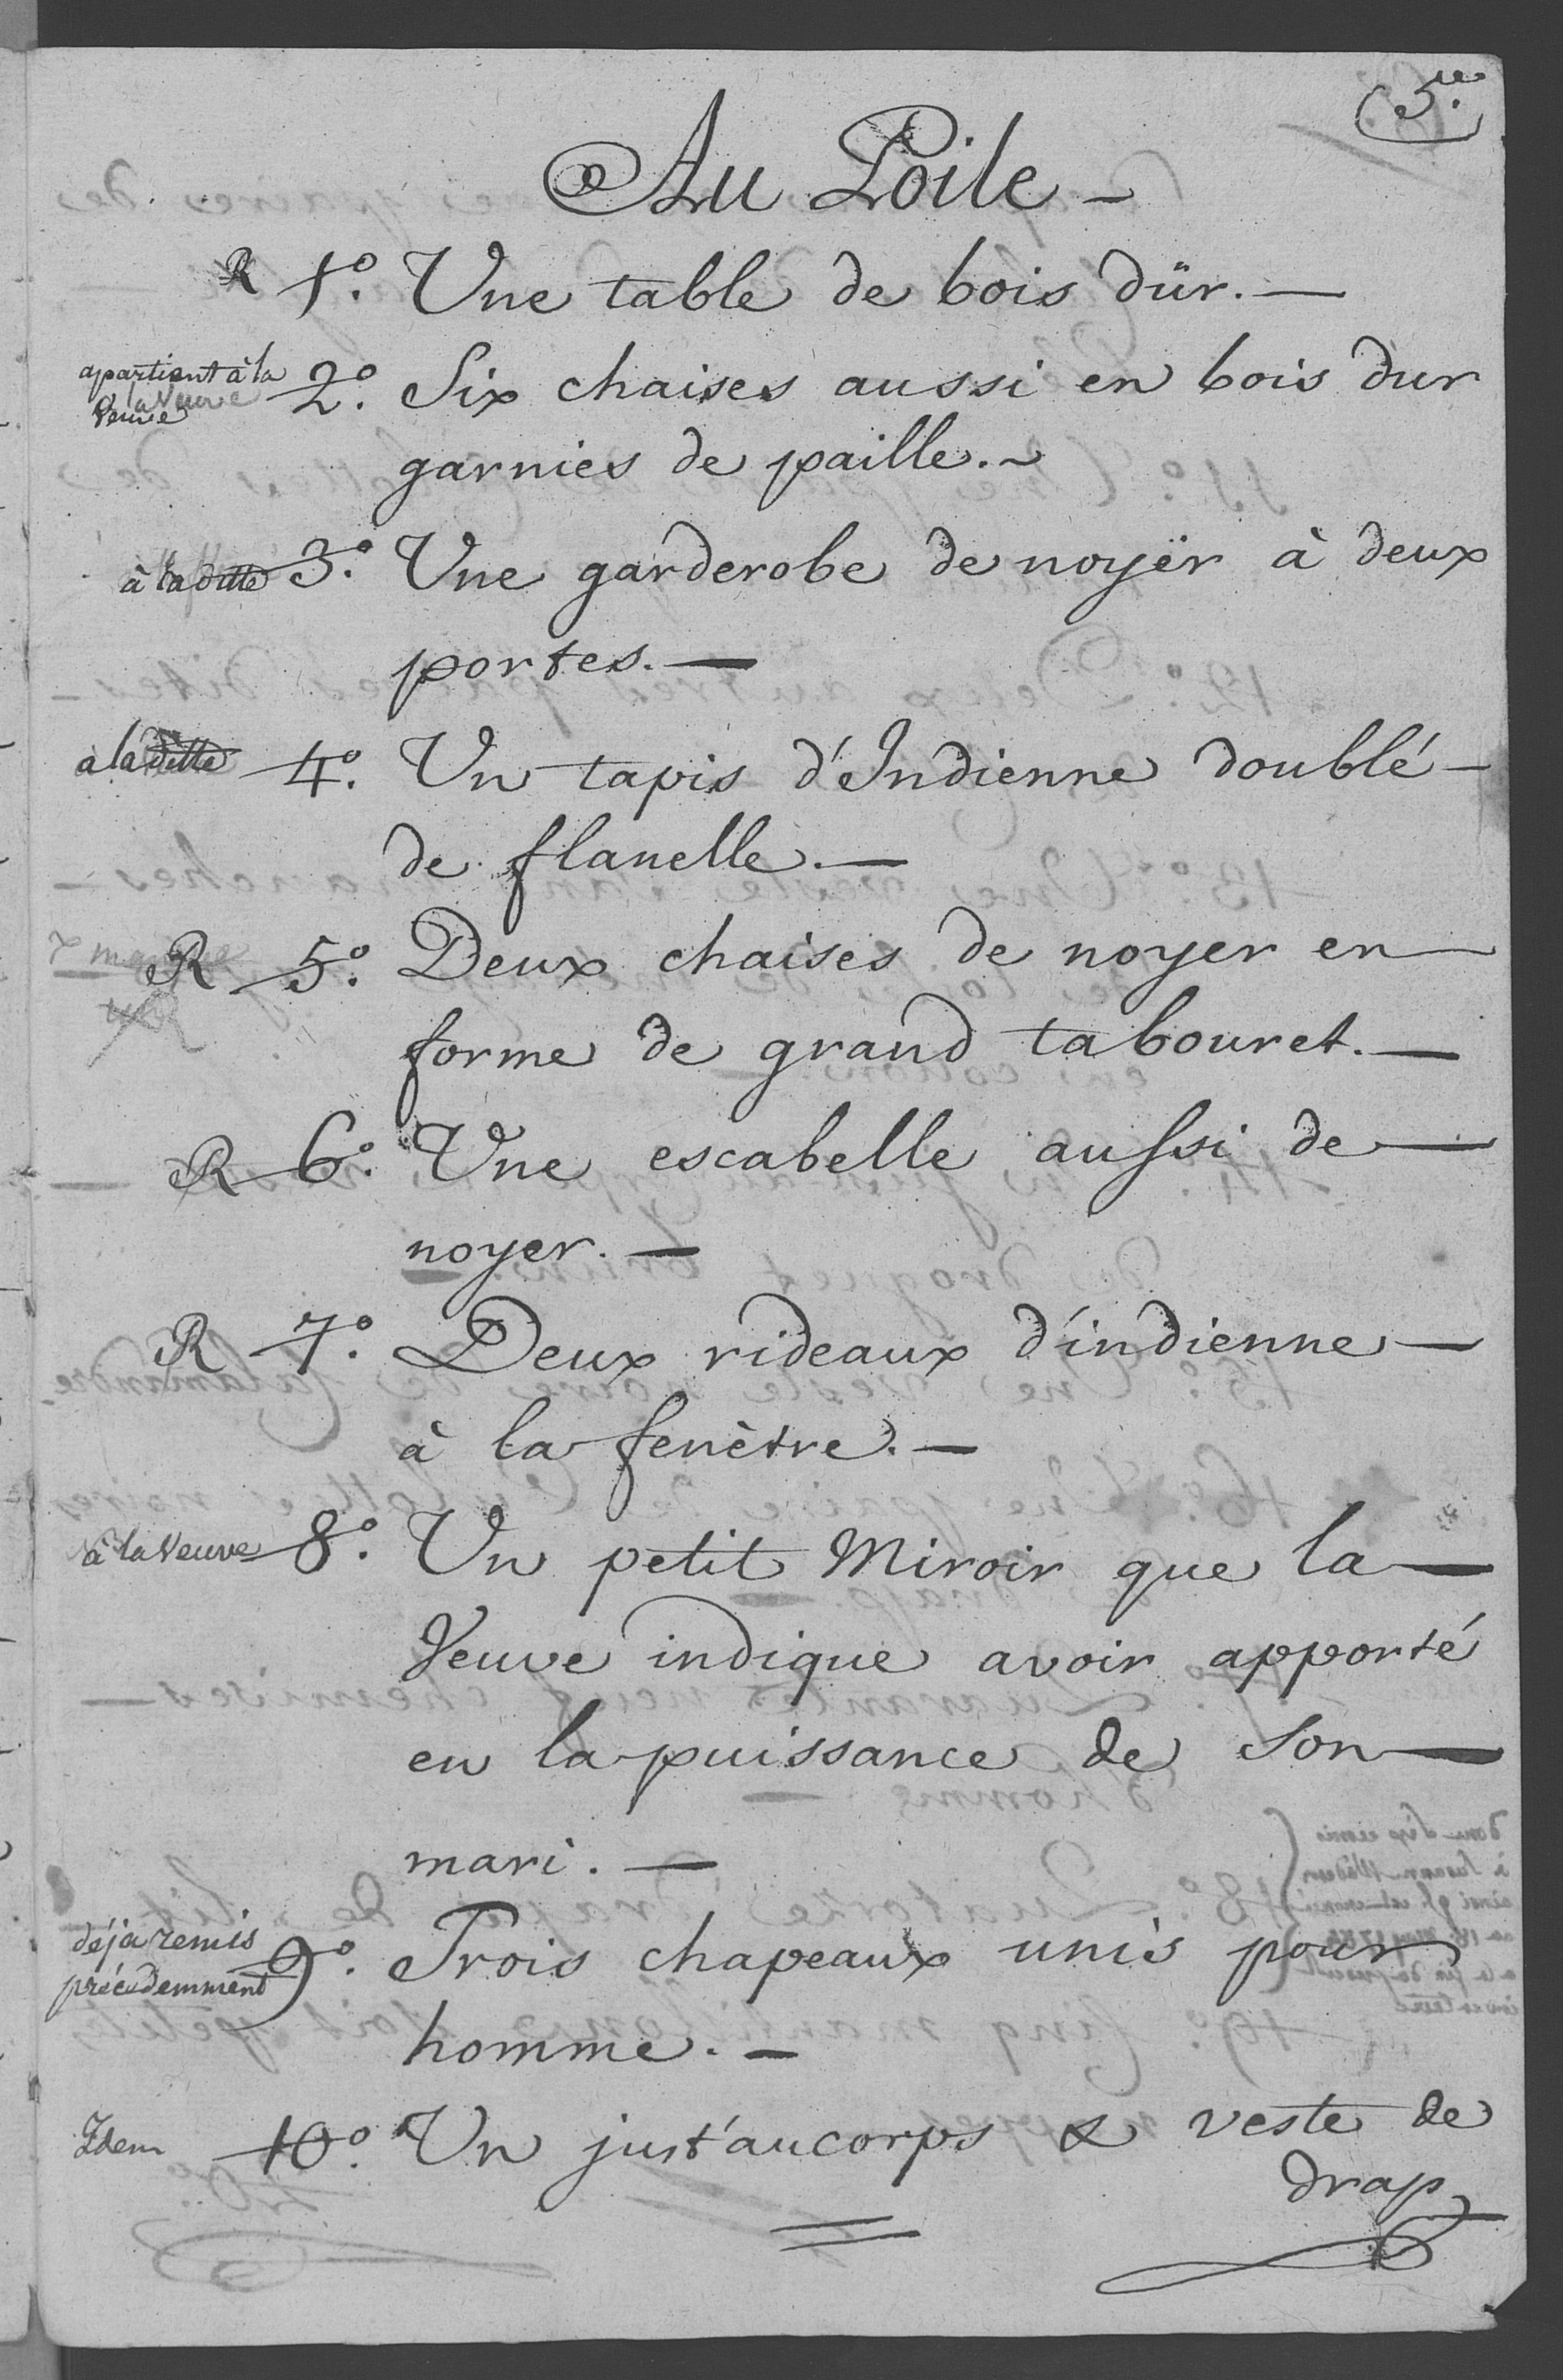 5.e
Au Poile -
R 1.° Une table de bois dür. —
apartient à la
Veuve
2.° Six chaises aussi en bois dur
garnies de paille. ~
à la ditte 3.° Une garderobe de noyër à deux
portes. —
à la ditte 4.° Un tapis d'Indienne doublé —
de flanelle. —
R 5.° Deux chaises de noyer en —
forme de grand tabouret. —
R 6.° Une escabelle aussi de —
noyer. —
R 7.° Deux rideaux d'indienne —
à la fenètre. —
à la Veuve 8.° Un petit Miroir que la —
Veuve indique avoir apporté
en la puissance de son —
mari. —
déja remis
précédemment
9.° Trois chapeaux unis pour
homme. —
Idem 10.° Un just'aucorps & veste de
drap